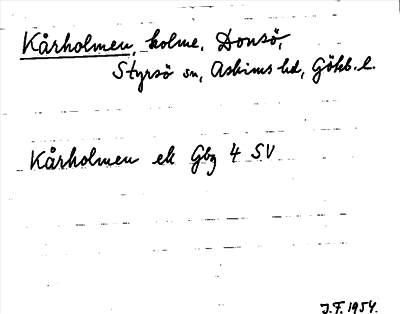 Kårholmen, holme, Donsö,
Styrsö sn, Askims hd, Götb. l.
Kårholmen ek Gbg 4 SV
J.F. 1954.